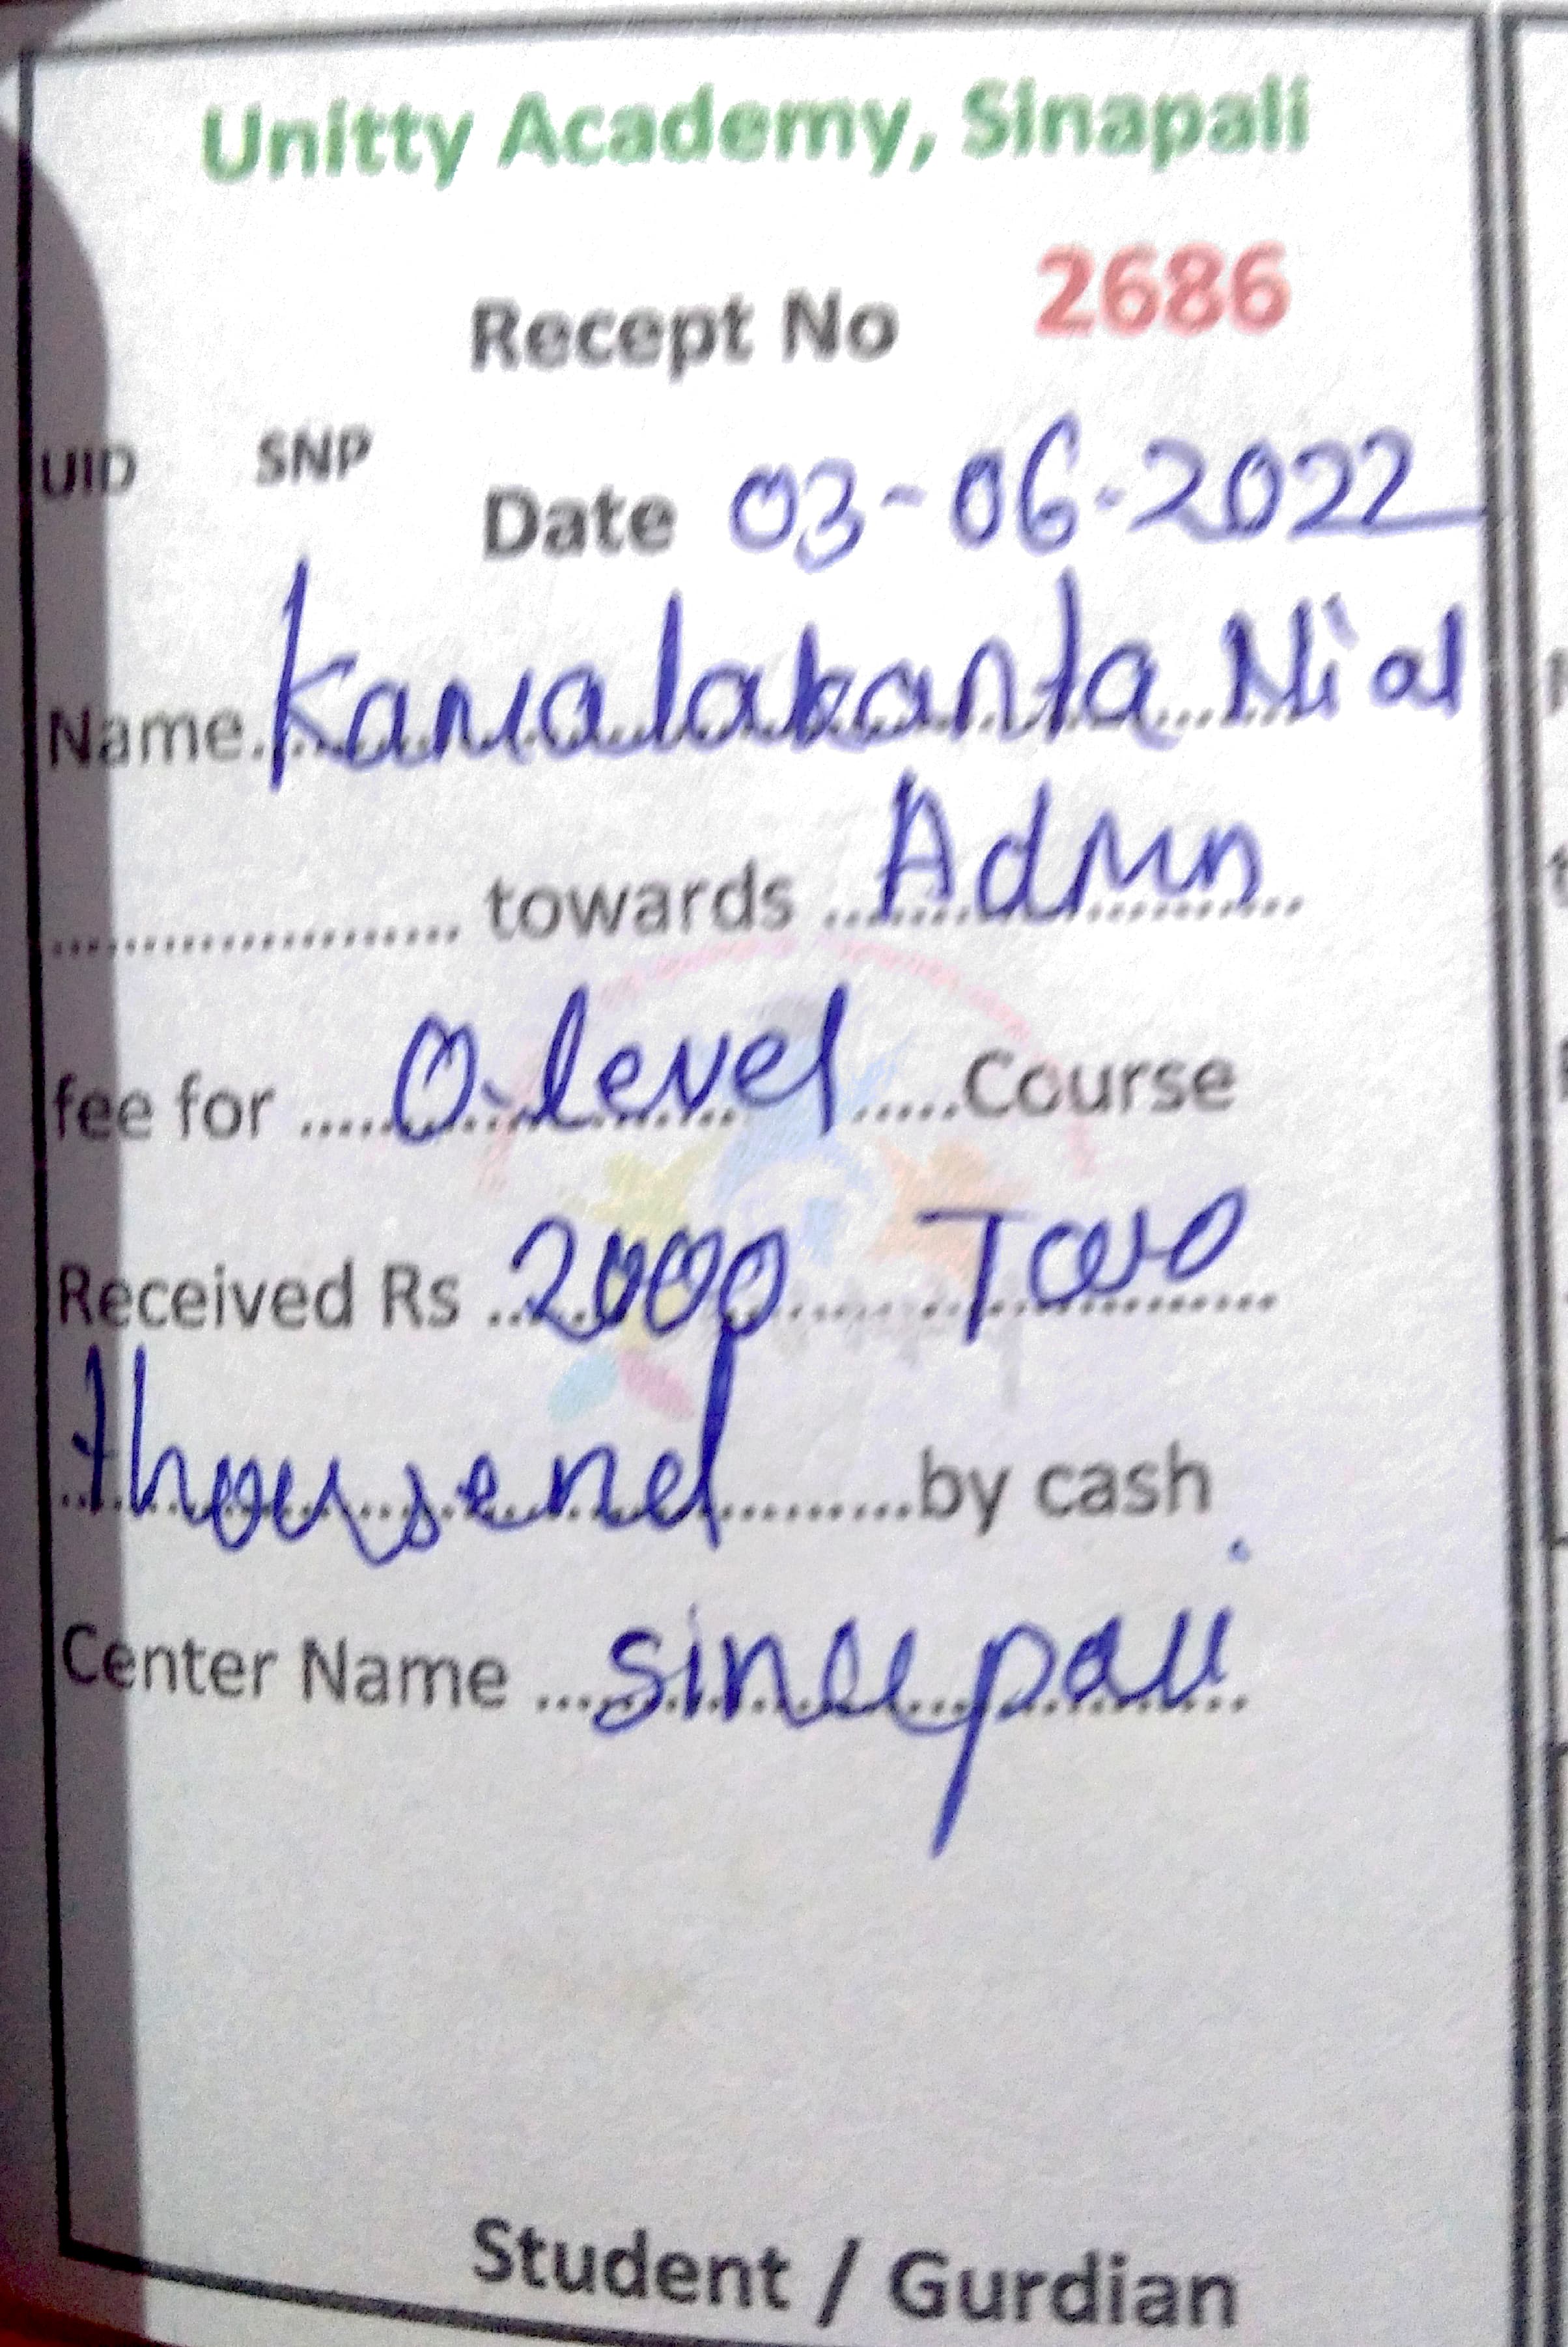 Unitty Academy, Sinapali
Recept No 2686
UID SNP
Date 03-06-2022
Name Kamalakanta Nial
towards Admn
fee for O-level Course
Received Rs 2000 Two
thousend by cash
Center Name sinapali
Student / Gurdian